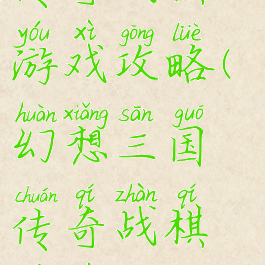 yóu xì gōng lüè
游戏攻略(
huàn xiǎng sān guó
幻想三国
chuán qí zhàn qí
传奇战棋